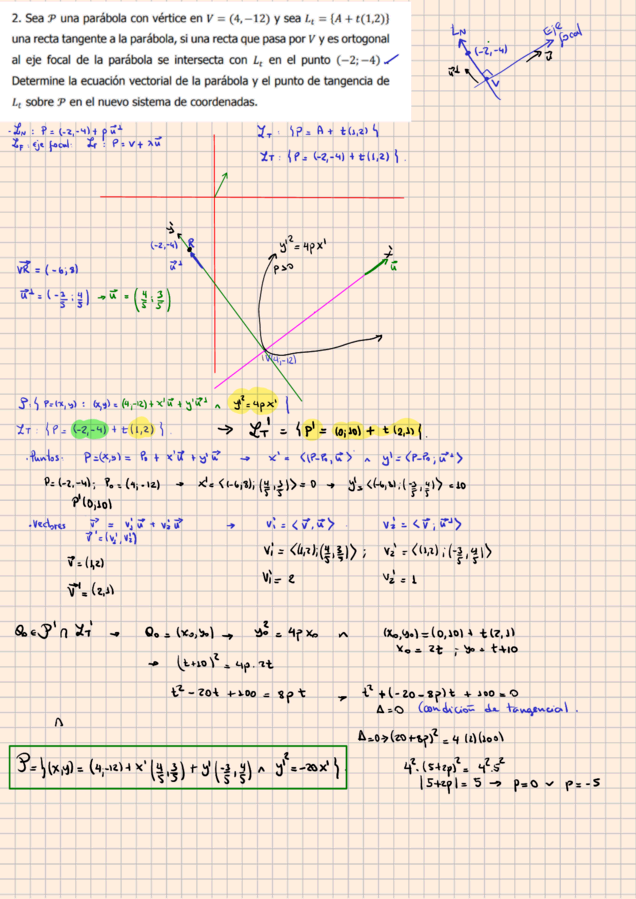 2. Sea 𝒫 una parábola con vértice en V = (4, −12) y sea L_t = {A + t(1,2)}
una recta tangente a la parábola, si una recta que pasa por V y es ortogonal
al eje focal de la parábola se intersecta con L_t en el punto (−2; −4)
Determine la ecuación vectorial de la parábola y el punto de tangencia de
L_t sobre 𝒫 en el nuevo sistema de coordenadas.
L_N
(-2,-4)
Eje focal
u⃗
u⃗⊥
V
· L_N : P = (-2,-4) + p u⃗⊥
L_F : eje focal: L_F : P = V + λu⃗
L_T : {P = A + t(1,2)}
L_T : {P = (-2,-4) + t(1,2)}.
y'
(-2,-4) R
u⃗⊥
y'² = 4px'
p>0
x'
u⃗
V(4,-12)
VR⃗ = (-6;8)
u⃗⊥ = (-3/5; 4/5) → u⃗ = (4/5; 3/5)
P: { P=(x,y) : (x,y) = (4,-12) + x'u⃗ + y'u⃗⊥ ∧ y'² = 4px' }
L_T: {P = (-2,-4) + t(1,2)}. → L_T' = {P' = (0;10) + t(2,1)}.
· Puntos: P=(x,y) = P₀ + x'u⃗ + y'u⃗⊥ → x' = <P-P₀, u⃗> ∧ y' = <P-P₀; u⃗⊥>
P=(-2,-4); P₀ = (4;-12) → x' = <(-6,8); (4/5, 3/5)> = 0 → y' = <(-6,8); (-3/5, 4/5)> = 10
P'(0,10)
· Vectores v⃗ = v₁'u⃗ + v₂'u⃗⊥ → v₁' = <v⃗, u⃗> v₂' = <v⃗; u⃗⊥>
v⃗' = (v₁', v₂')
v₁' = <(1,2); (4/5, 3/5)>; v₂' = <(1,2); (-3/5, 4/5)>
v⃗ = (1,2)
v₁' = 2 v₂' = 1
v⃗' = (2,1)
Q₀ ∈ P' ∩ L_T' → Q₀ = (x₀,y₀) → y₀² = 4px₀ ∧ (x₀,y₀) = (0,10) + t(2,1)
x₀ = 2t ; y₀ = t+10
→ (t+10)² = 4p·2t
t² - 20t + 100 = 8pt → t² + (-20-8p)t + 100 = 0
Δ=0 (condición de tangencia).
∧
Δ=0 → (20+8p)² = 4(1)(100)
P = {(x,y) = (4,-12) + x'(4/5, 3/5) + y'(-3/5, 4/5) ∧ y'² = -20x'}
4²·(5+2p)² = 4²·5²
|5+2p| = 5 → p=0 ∨ p=-5